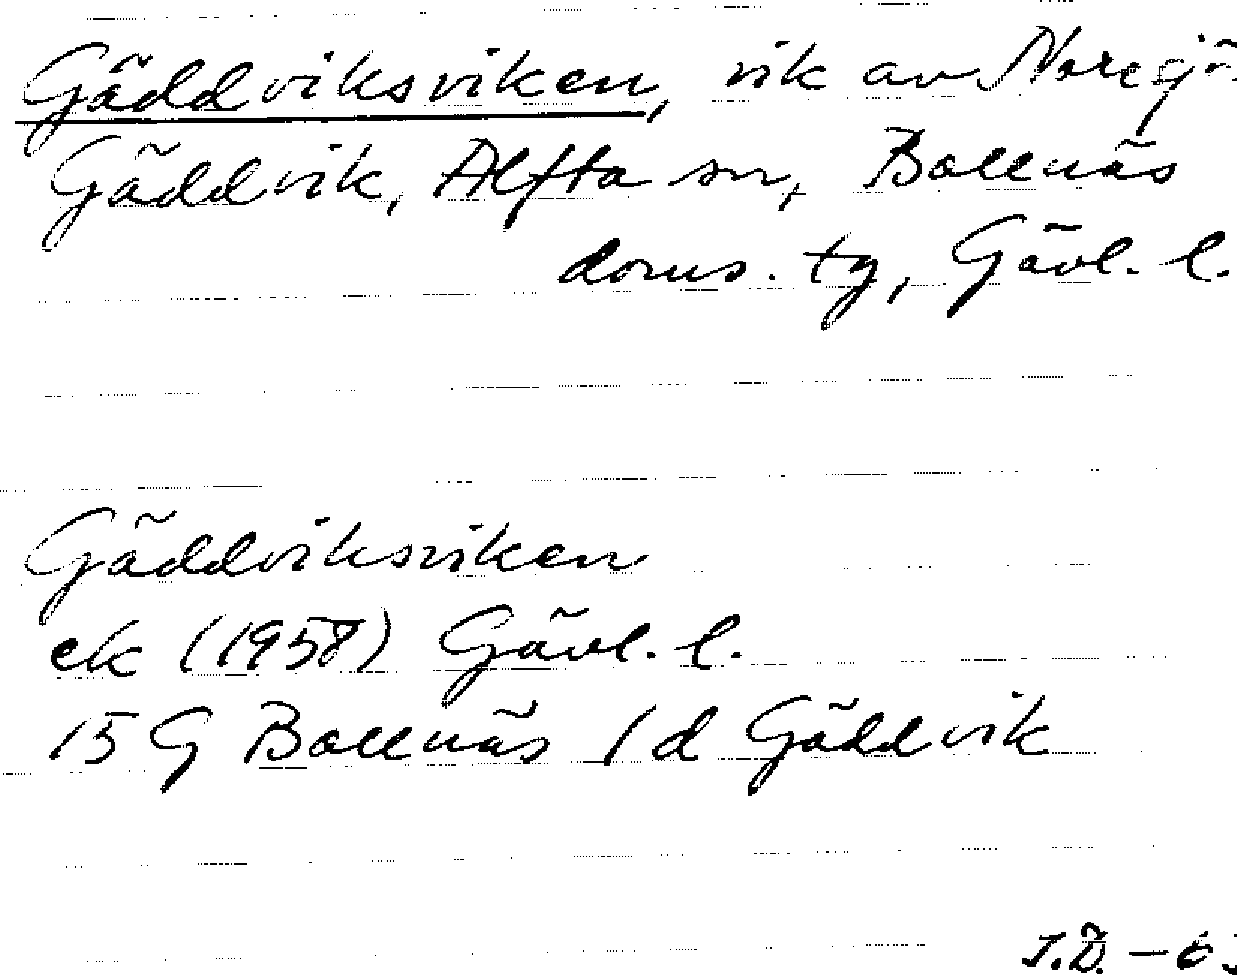 Gäddviksviken, vik av
Gäddvik, Alfta sn, Bollnäs
doms. tg, Gävl. l.
Gäddviksviken
ek (1958) Gävl. l.
15 G Bollnäs 1 d Gäddvik